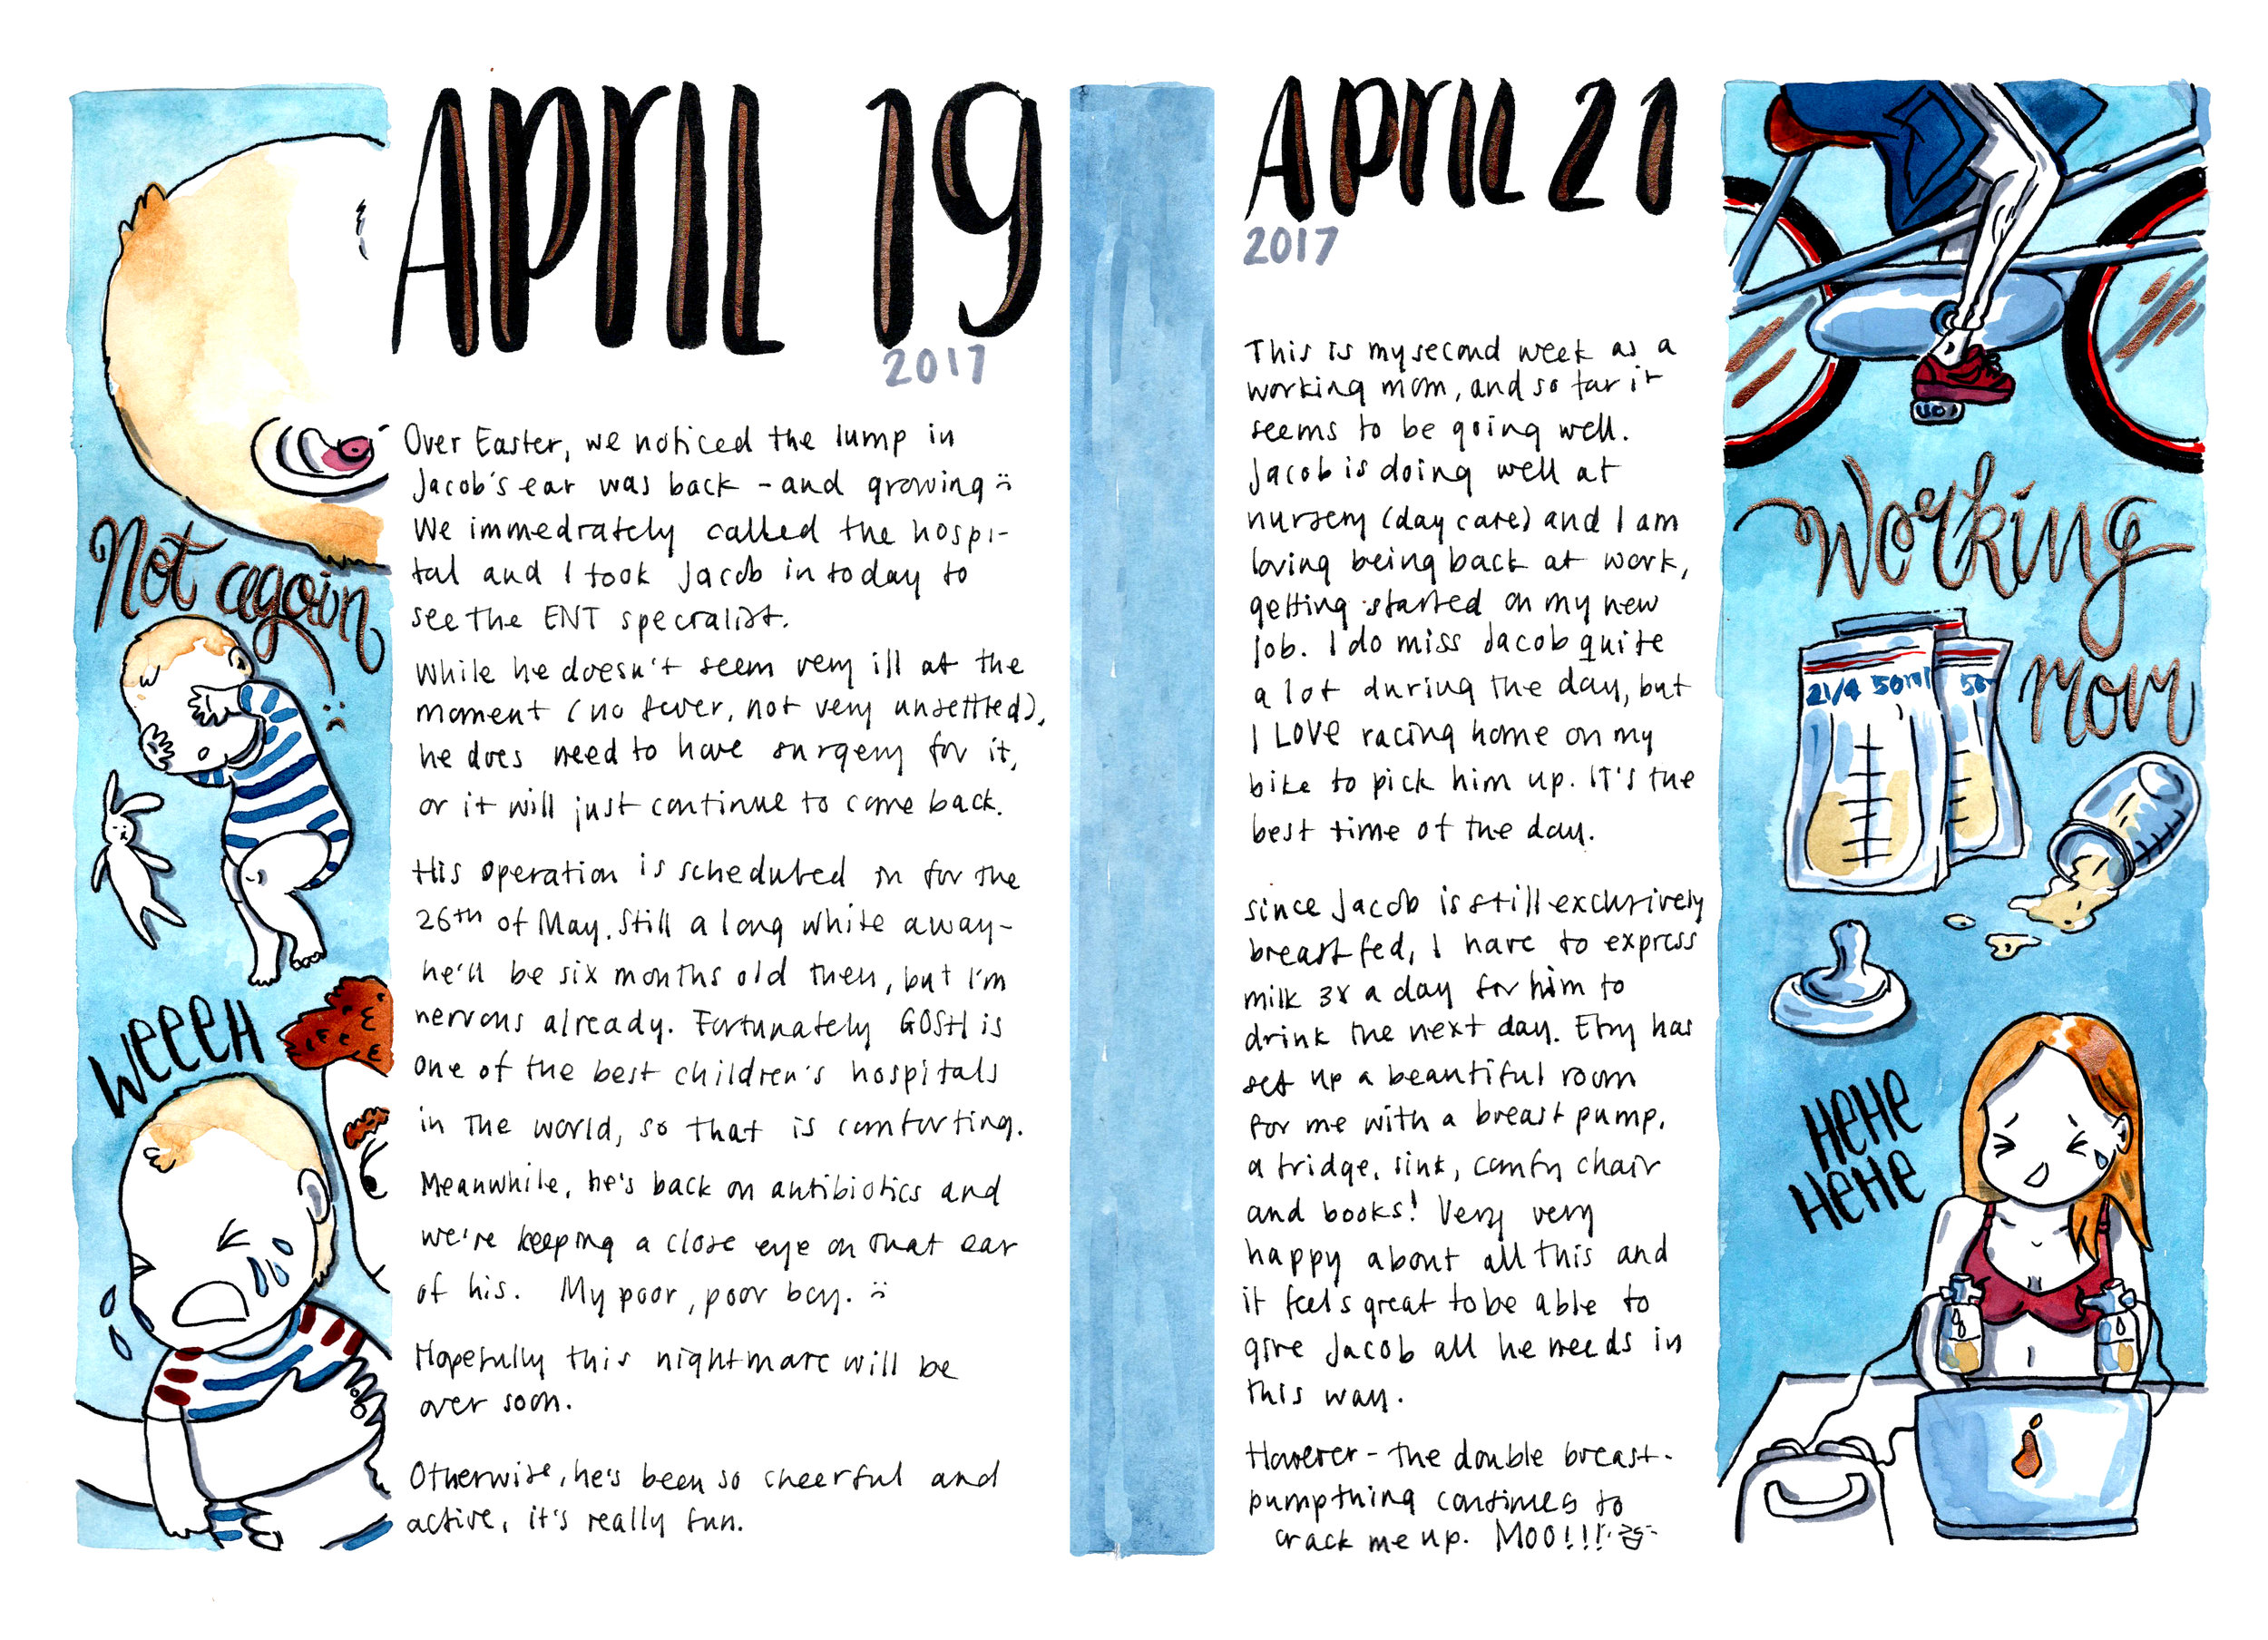 APRIL 19
2017
Over Easter, we noticed the lump in
Jacob's ear was back - and growing :(
We immediately called the hospi-
tal and I took Jacob in today to
see the ENT specialist.
While he doesn't seem very ill at the
moment (no fever, not very unsettled),
he does need to have surgery for it,
or it will just continue to come back.
His operation is scheduled in for the
26th of May. Still a long while away -
he'll be six months old then, but I'm
nervous already. Fortunately GOSH is
one of the best children's hospitals
in the world, so that is comforting.
Meanwhile, he's back on antibiotics and
we're keeping a close eye on that ear
of his. My poor, poor boy. :(
Hopefully this nightmare will be
over soon.
Otherwise, he's been so cheerful and
active, it's really fun.
Not again
:(
WEEEH
APRIL 21
2017
This is my second week as a
working mom, and so far it
seems to be going well.
Jacob is doing well at
nursery (day care) and I am
loving being back at work,
getting started on my new
job. I do miss Jacob quite
a lot during the day, but
I LOVE racing home on my
bike to pick him up. IT's the
best time of the day.
since Jacob is still exclusively
breastfed, I have to express
milk 3x a day for him to
drink the next day. Etsy has
set up a beautiful room
for me with a breast pump,
a fridge, sink, comfy chair
and books! Very very
happy about all this and
it feels great to be able to
give Jacob all he needs in
this way.
However - the double breast-
pump thing continues to
crack me up. MOO!!!
Working
Mom
21/4 50ml
50
HEHE
HEHE